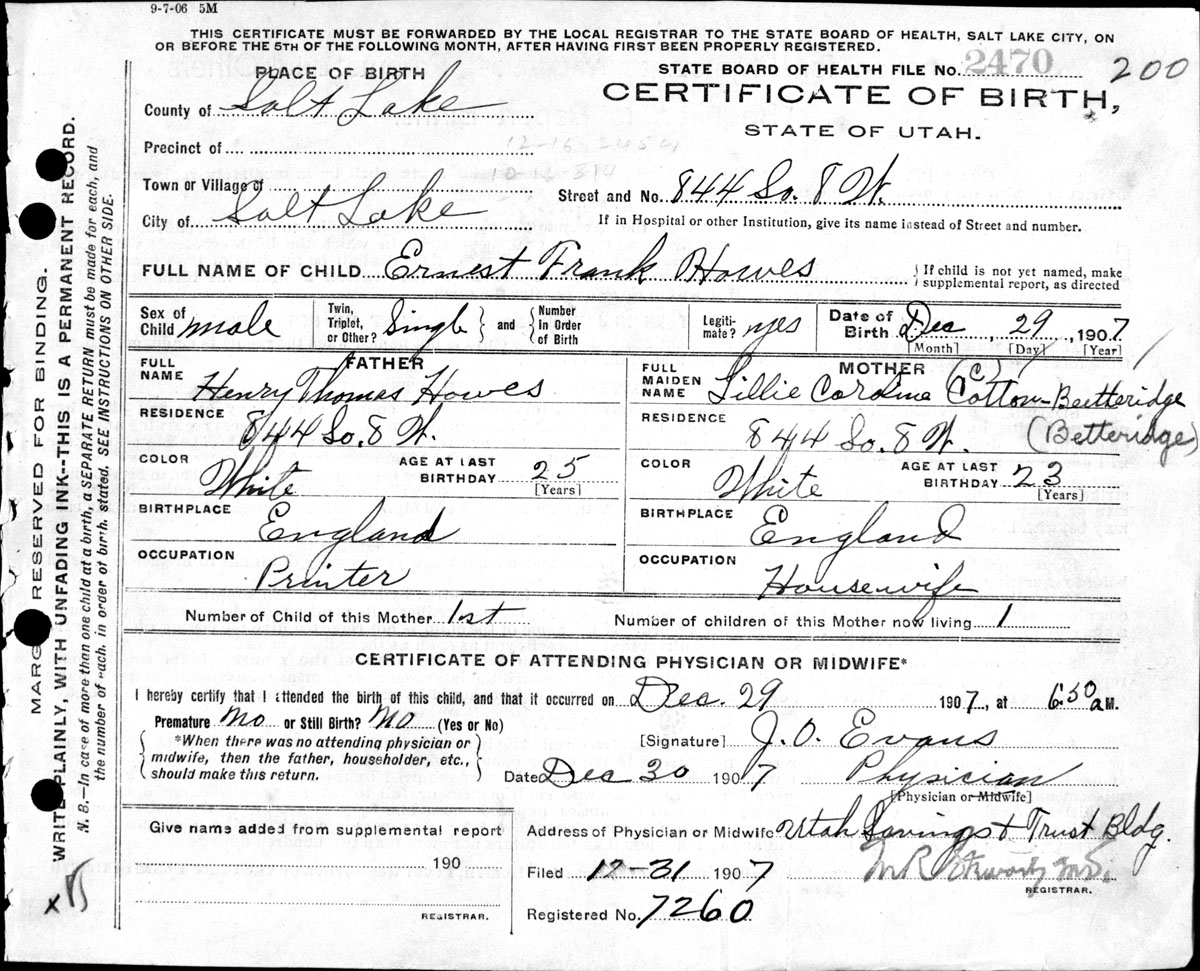 9-7-06 5M
THIS CERTIFICATE MUST BE FORWARDED BY THE LOCAL REGISTRAR TO THE STATE BOARD OF HEALTH, SALT LAKE CITY, ON
OR BEFORE THE 5TH OF THE FOLLOWING MONTH, AFTER HAVING FIRST BEEN PROPERLY REGISTERED.
PLACE OF BIRTH
STATE BOARD OF HEALTH FILE No. 2470 200
County of Salt Lake
CERTIFICATE OF BIRTH,
STATE OF UTAH.
Precinct of
Town or Village of
Street and No. 844 So. 8 W.
City of Salt Lake
If in Hospital or other Institution, give its name instead of Street and number.
FULL NAME OF CHILD Ernest Frank Howes
If child is not yet named, make
supplemental report, as directed
Sex of Child male
Twin, Triplet, or Other? Single and Number In Order of Birth
Legitimate? yes
Date of Birth Dec 29 1907
[Month] [Day] [Year]
FATHER
FULL NAME Henry Thomas Howes
RESIDENCE 844 So. 8 W.
COLOR White AGE AT LAST BIRTHDAY 25
[Years]
BIRTHPLACE England
OCCUPATION Printer
MOTHER (C)
FULL MAIDEN NAME Lillie Caroline Cotton-Beetteridge
RESIDENCE 844 So. 8 W. (Betteridge)
COLOR White AGE AT LAST BIRTHDAY 23
[Years]
BIRTHPLACE England
OCCUPATION Housewife
Number of Child of this Mother 1st Number of children of this Mother now living 1
CERTIFICATE OF ATTENDING PHYSICIAN OR MIDWIFE*
I hereby certify that I attended the birth of this child, and that it occurred on Dec. 29 1907, at 630 a M.
Premature No or Still Birth? No (Yes or No)
*When there was no attending physician or
midwife, then the father, householder, etc.,
should make this return.
[Signature] J. O. Evans
Date Dec 30 1907 Physician
[Physician or Midwife]
Give name added from supplemental report
190
REGISTRAR.
Address of Physician or Midwife Utah Savings & Trust Bldg.
Filed 12-31 1907
REGISTRAR.
Registered No. 7260
MARGIN RESERVED FOR BINDING.
WRITE PLAINLY, WITH UNFADING INK--THIS IS A PERMANENT RECORD.
N. B.—In case of more then one child at a birth, a SEPARATE RETURN must be made for each, and
the number of each, in order of birth, stated. SEE INSTRUCTIONS ON OTHER SIDE.